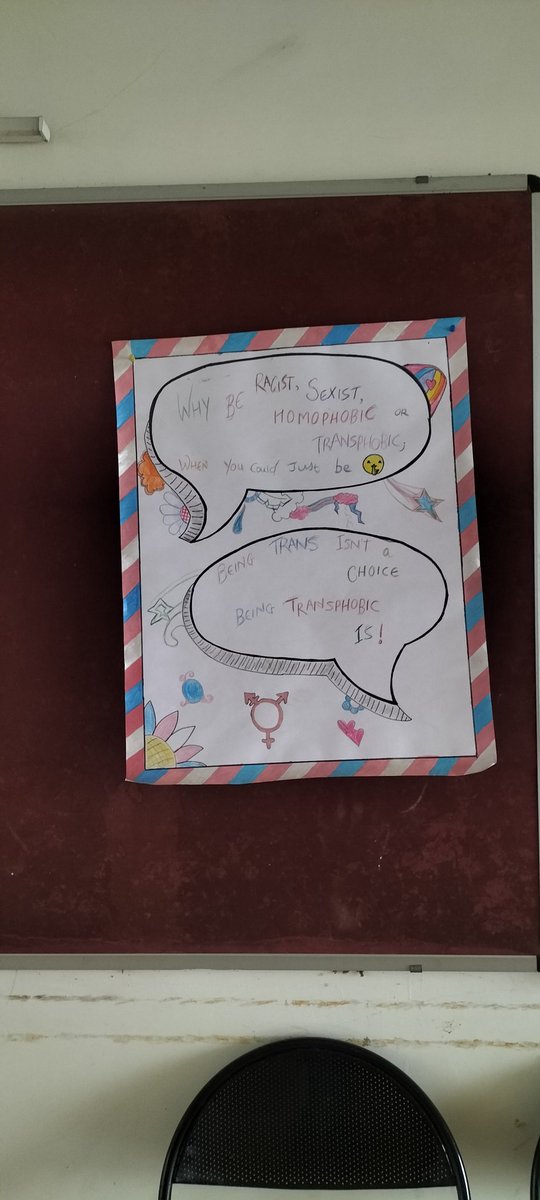 WHY BE RACIST, SEXIST,
HOMOPHOBIC OR
TRANSPHOBIC,
WHEN YOU COULD JUST be
BEING TRANS ISNT a
CHOICE
BEING TRANSPHOBIC
IS!